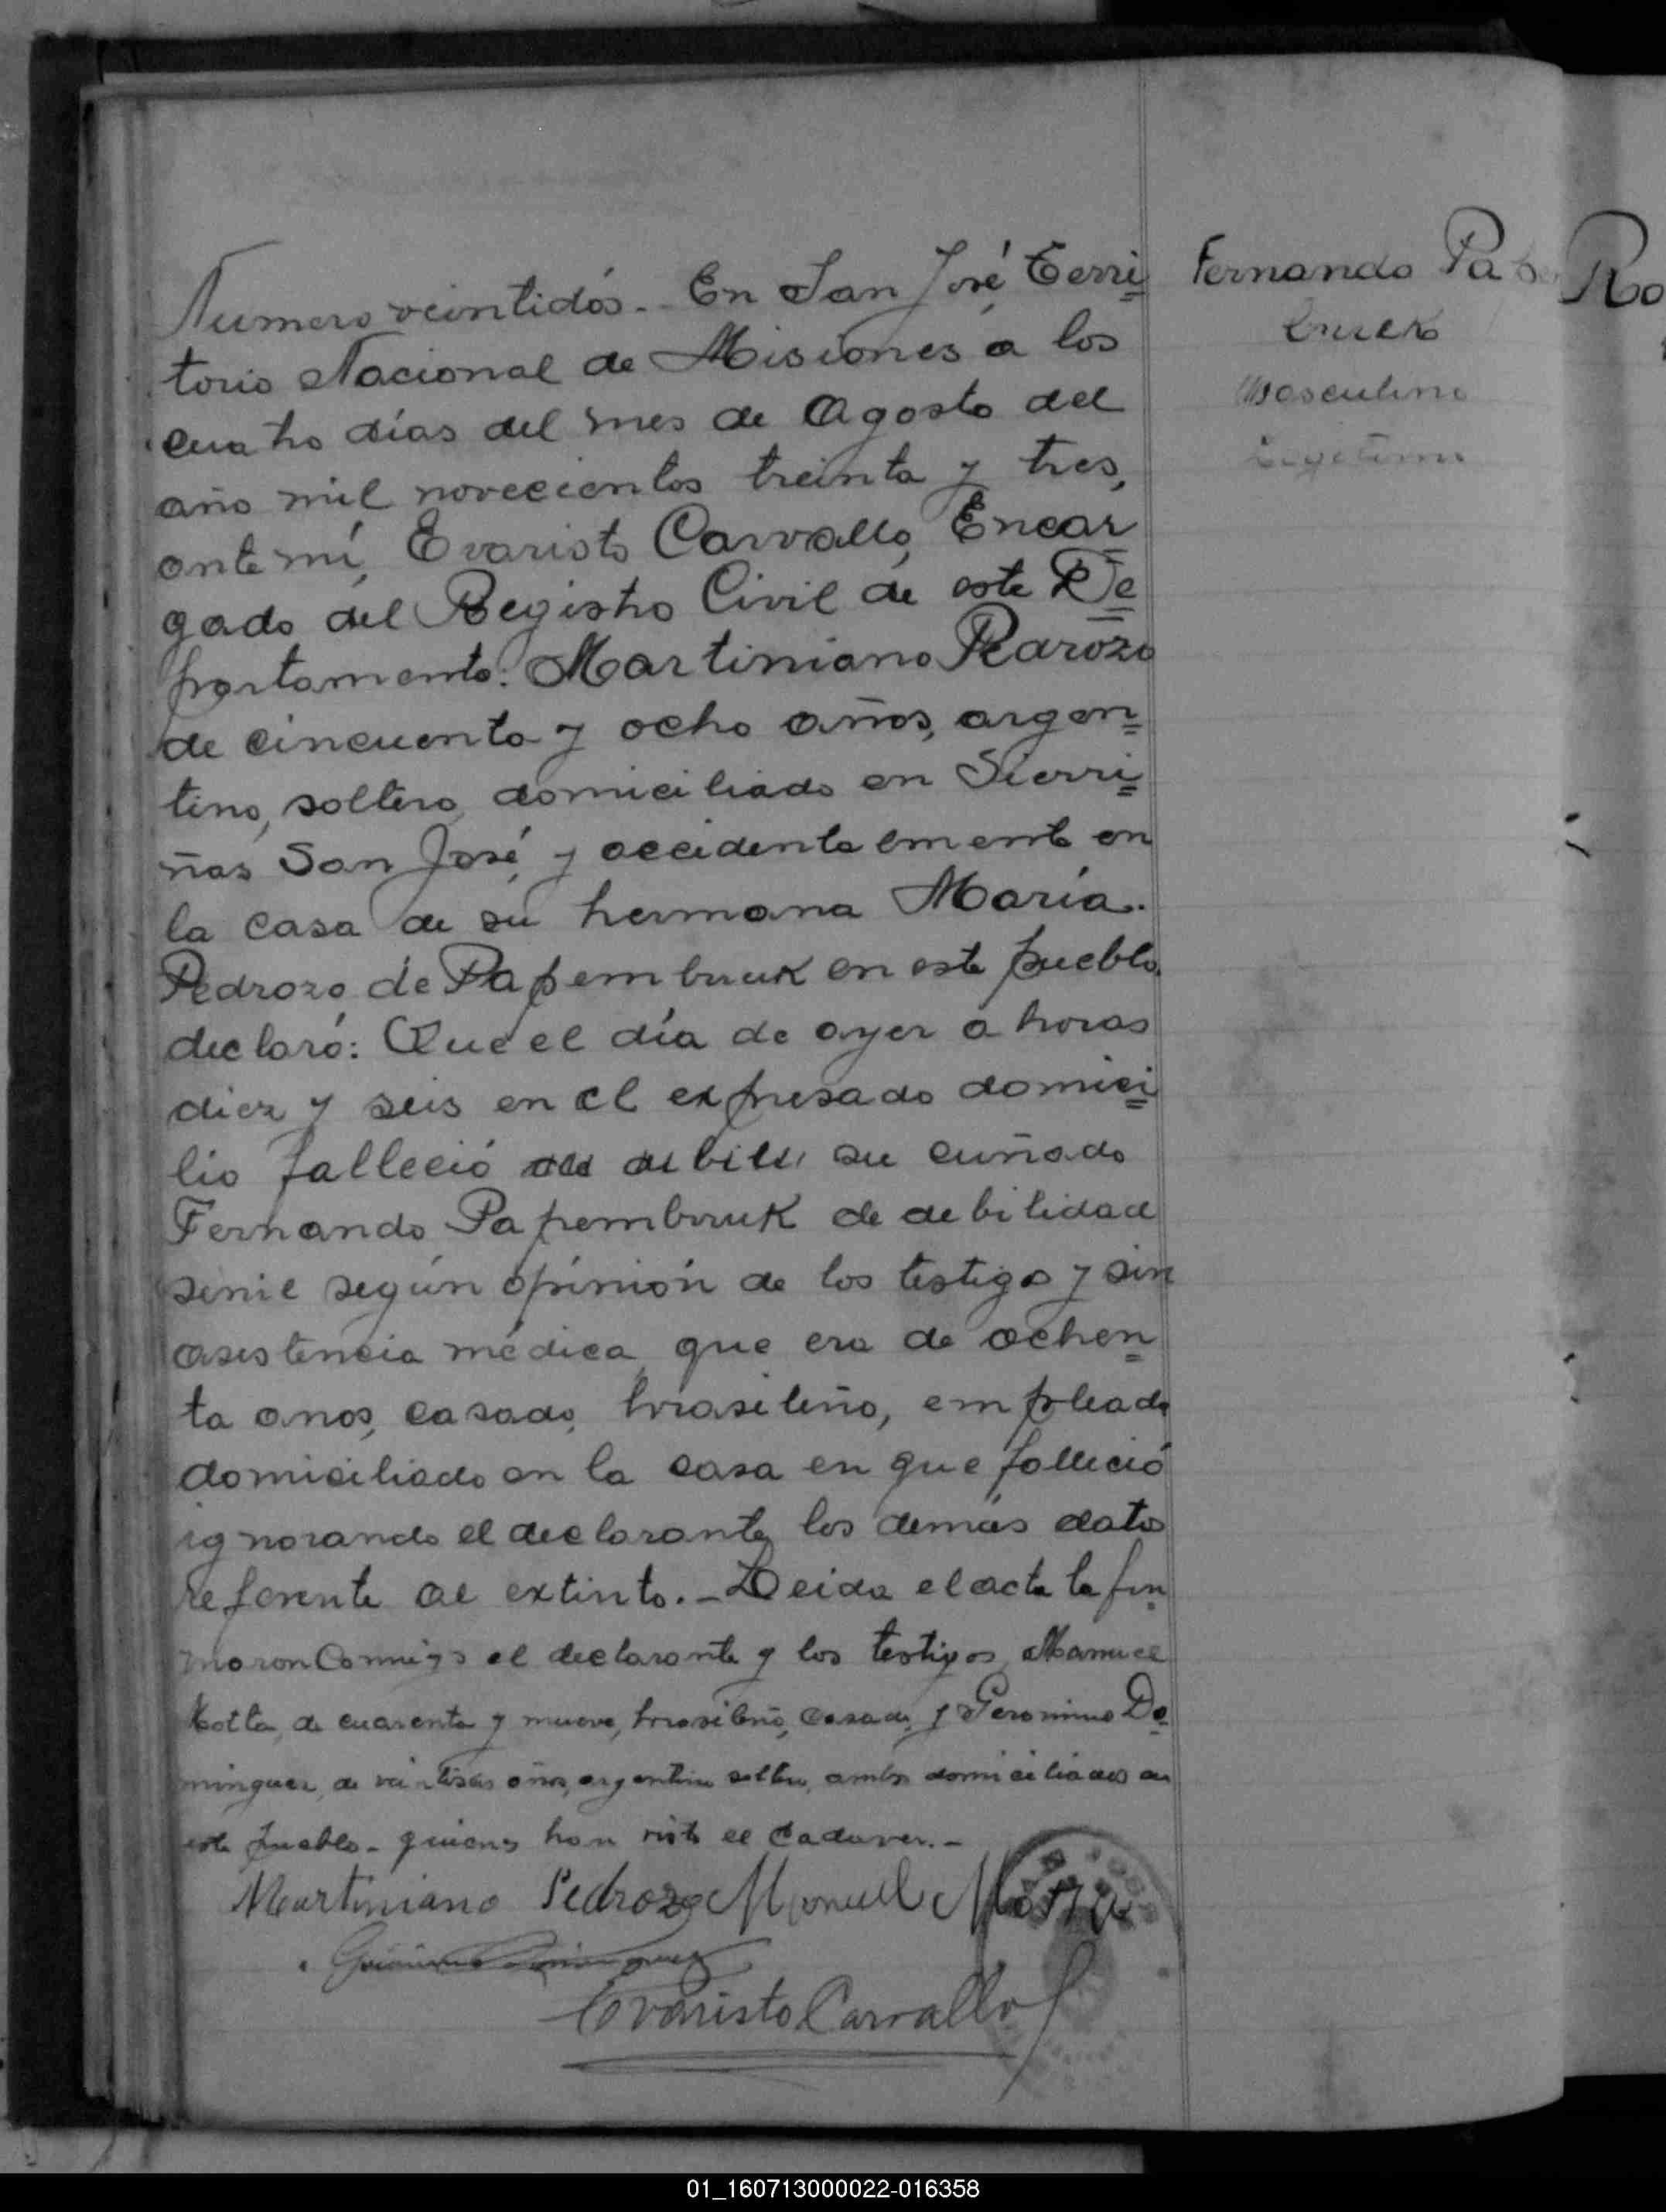 Numero veintidós.- En San José, Terri=
torio Nacional de Misiones a los
cuatro días del mes de Agosto del
año mil novecientos treinta y tres,
ante mí, Evaristo Carvallo, Encar=
gado del Registro Civil de este De=
partamento: Martiniano Pedrozo
de cincuenta y ocho años, argen=
tino, soltero, domiciliado en Sierri=
ñas San José, y accidentalmente en
la casa de su hermana María.
Pedrozo de Papembruuk en este pueblo,
declaró: Que el día de ayer a horas
diez y seis en el expresado domici=
lio falleció su cuñado
Fernando Papembruuk de debilidad
senil según opinión de los testigos y sin
asistencia médica, que era de ochen=
ta anos, casado, brasileño, empleado
domiciliado en la casa en que falleció
ignorando el declarante los demás datos
referente al extinto.- Leida el acta la fir=
maron Conmigo el declarante y los testigos, Manuel
Motta, de cuarenta y nueve, brasileño, casado, y Geronimo Do=
minguez, de veintiseis años, argentino soltero, ambos domiciliados en
este pueblo- quienes han visto el Cadaver.-
Martiniano Pedrozo Manuel Motta
Evaristo Carvallo
Fernando Papem
bruuk
Masculino
Legitimo
Ro
01_160713000022-016358